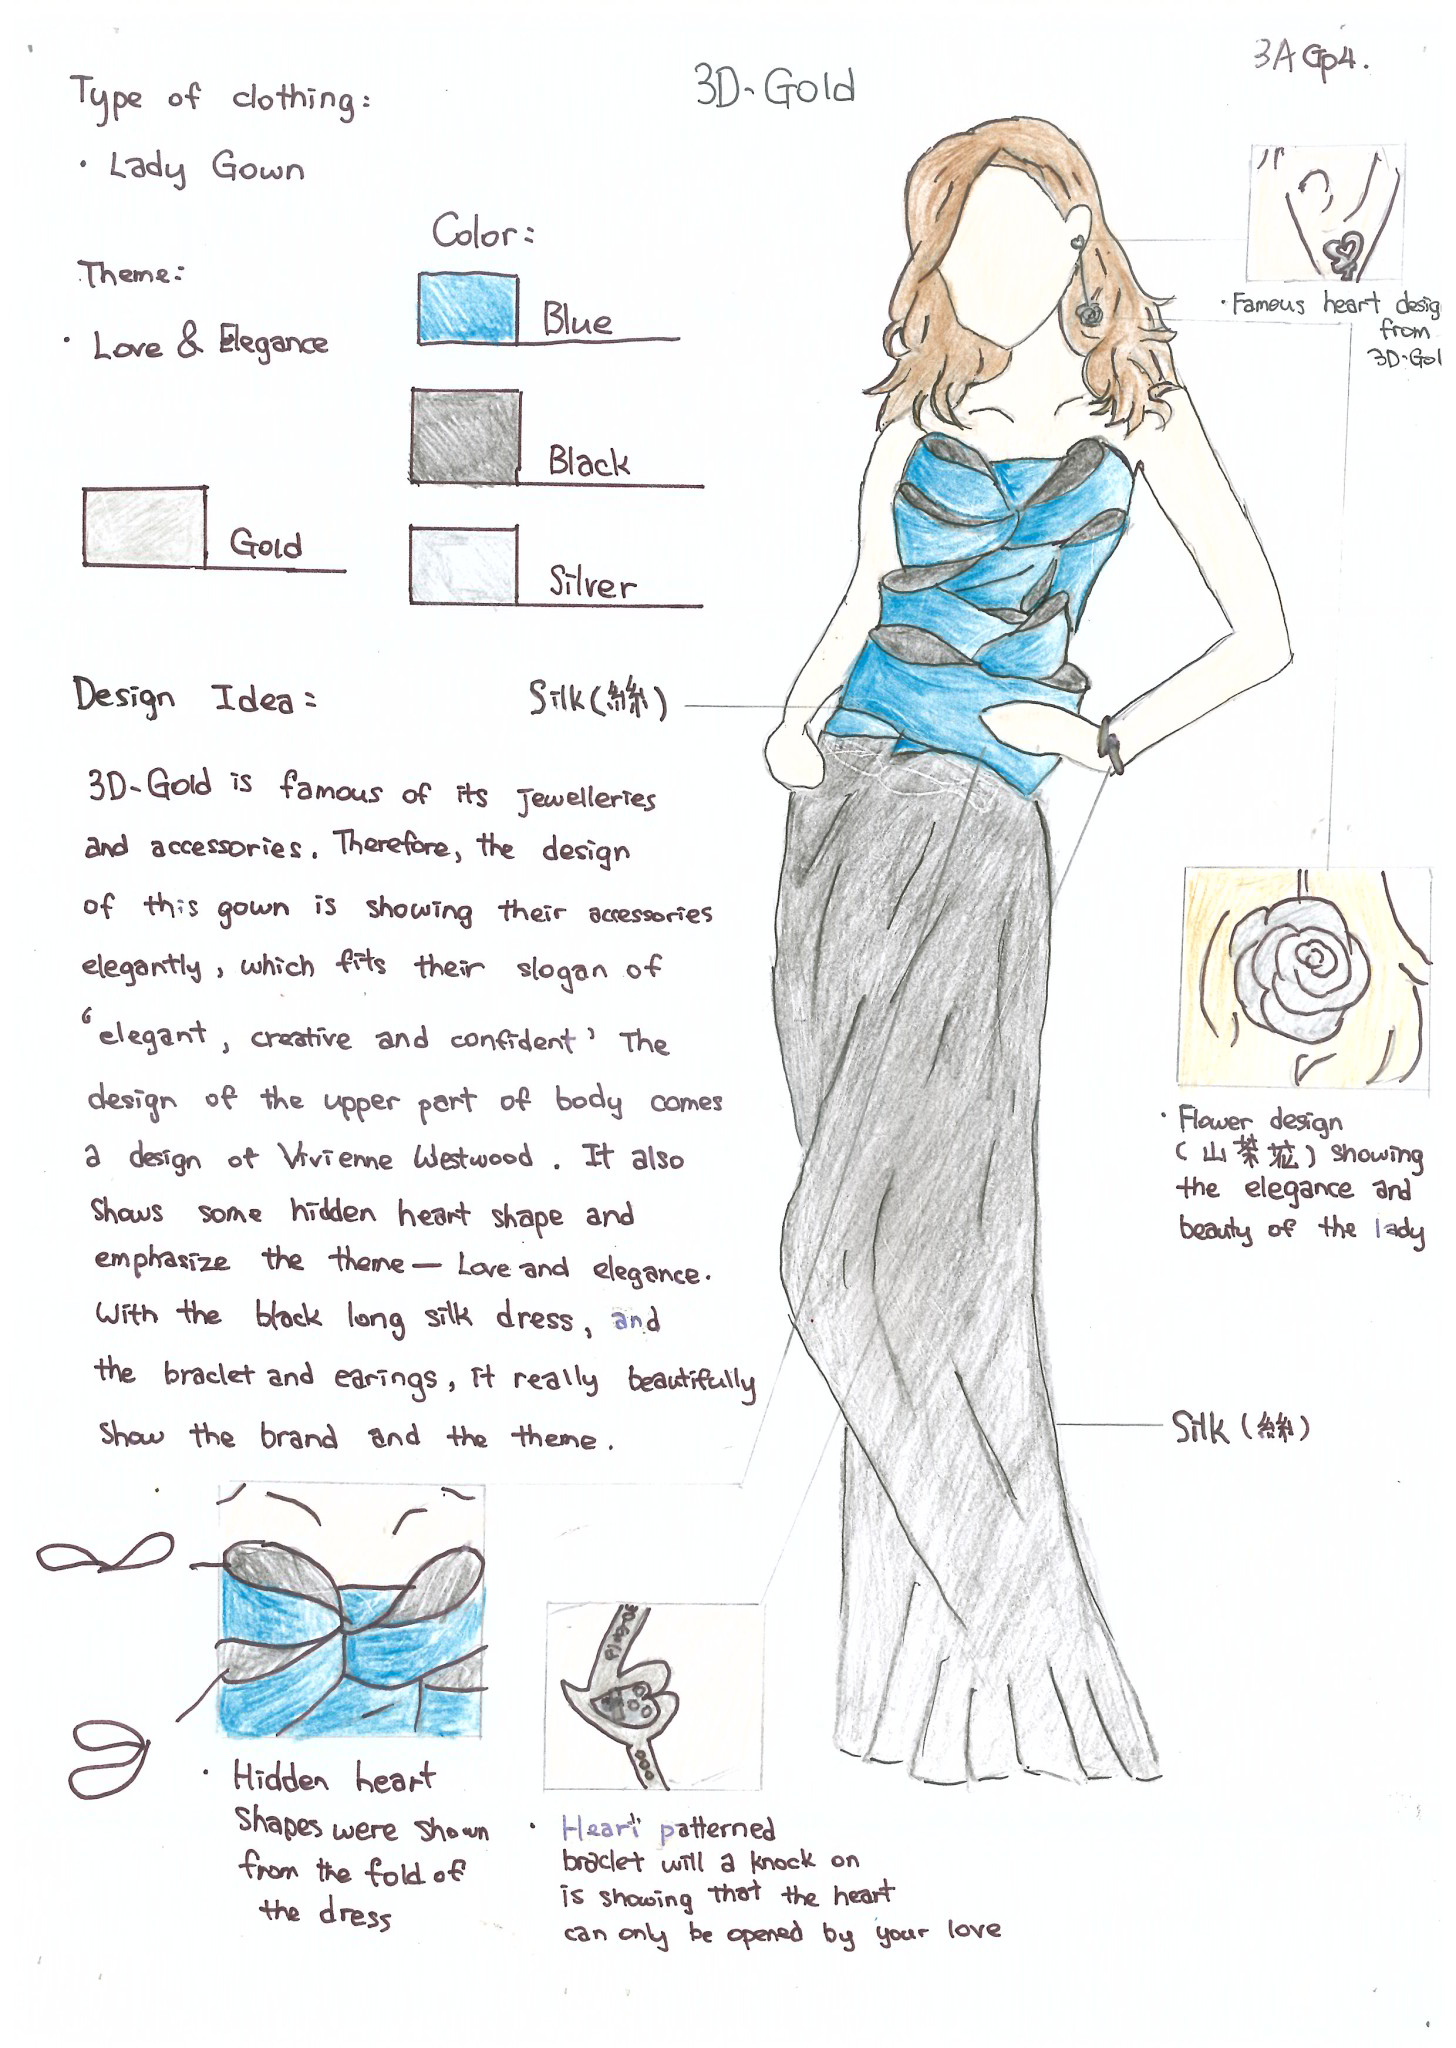 3A Gp4.
3D-Gold
Type of clothing:
· Lady Gown
Theme:
· Love & Elegance
Color:
Blue
Black
Gold
Silver
· Famous heart desig
from
3D-Gol
Design Idea:
Silk (絲)
3D-Gold is famous of its jewelleries
and accessories. Therefore, the design
of this gown is showing their accessories
elegantly, which fits their slogan of
'elegant, creative and confident' The
design of the upper part of body comes
a design of Vivienne Westwood. It also
shows some hidden heart shape and
emphasize the theme — Love and elegance.
With the black long silk dress, and
the braclet and earings, it really beautifully
show the brand and the theme.
· Flower design
(山茶花) showing
the elegance and
beauty of the lady
Silk (絲)
· Hidden heart
shapes were shown
from the fold of
the dress
3D-Gold
· Heart patterned
braclet will a knock on
is showing that the heart
can only be opened by your love